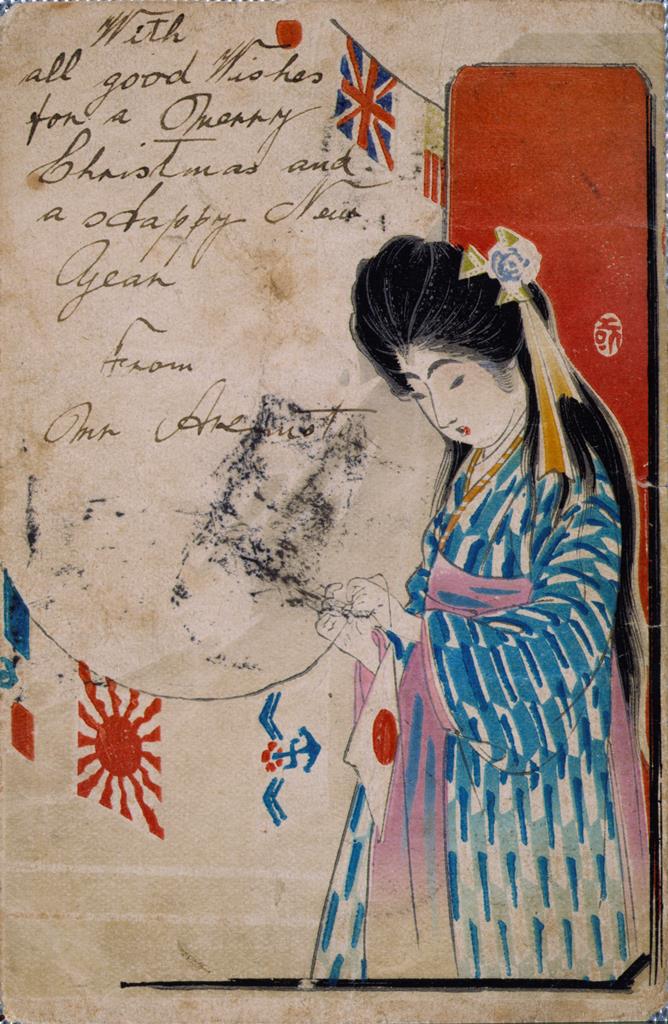 With
all good Wishes
for a Merry
Christmas and
a Happy New
Year
From